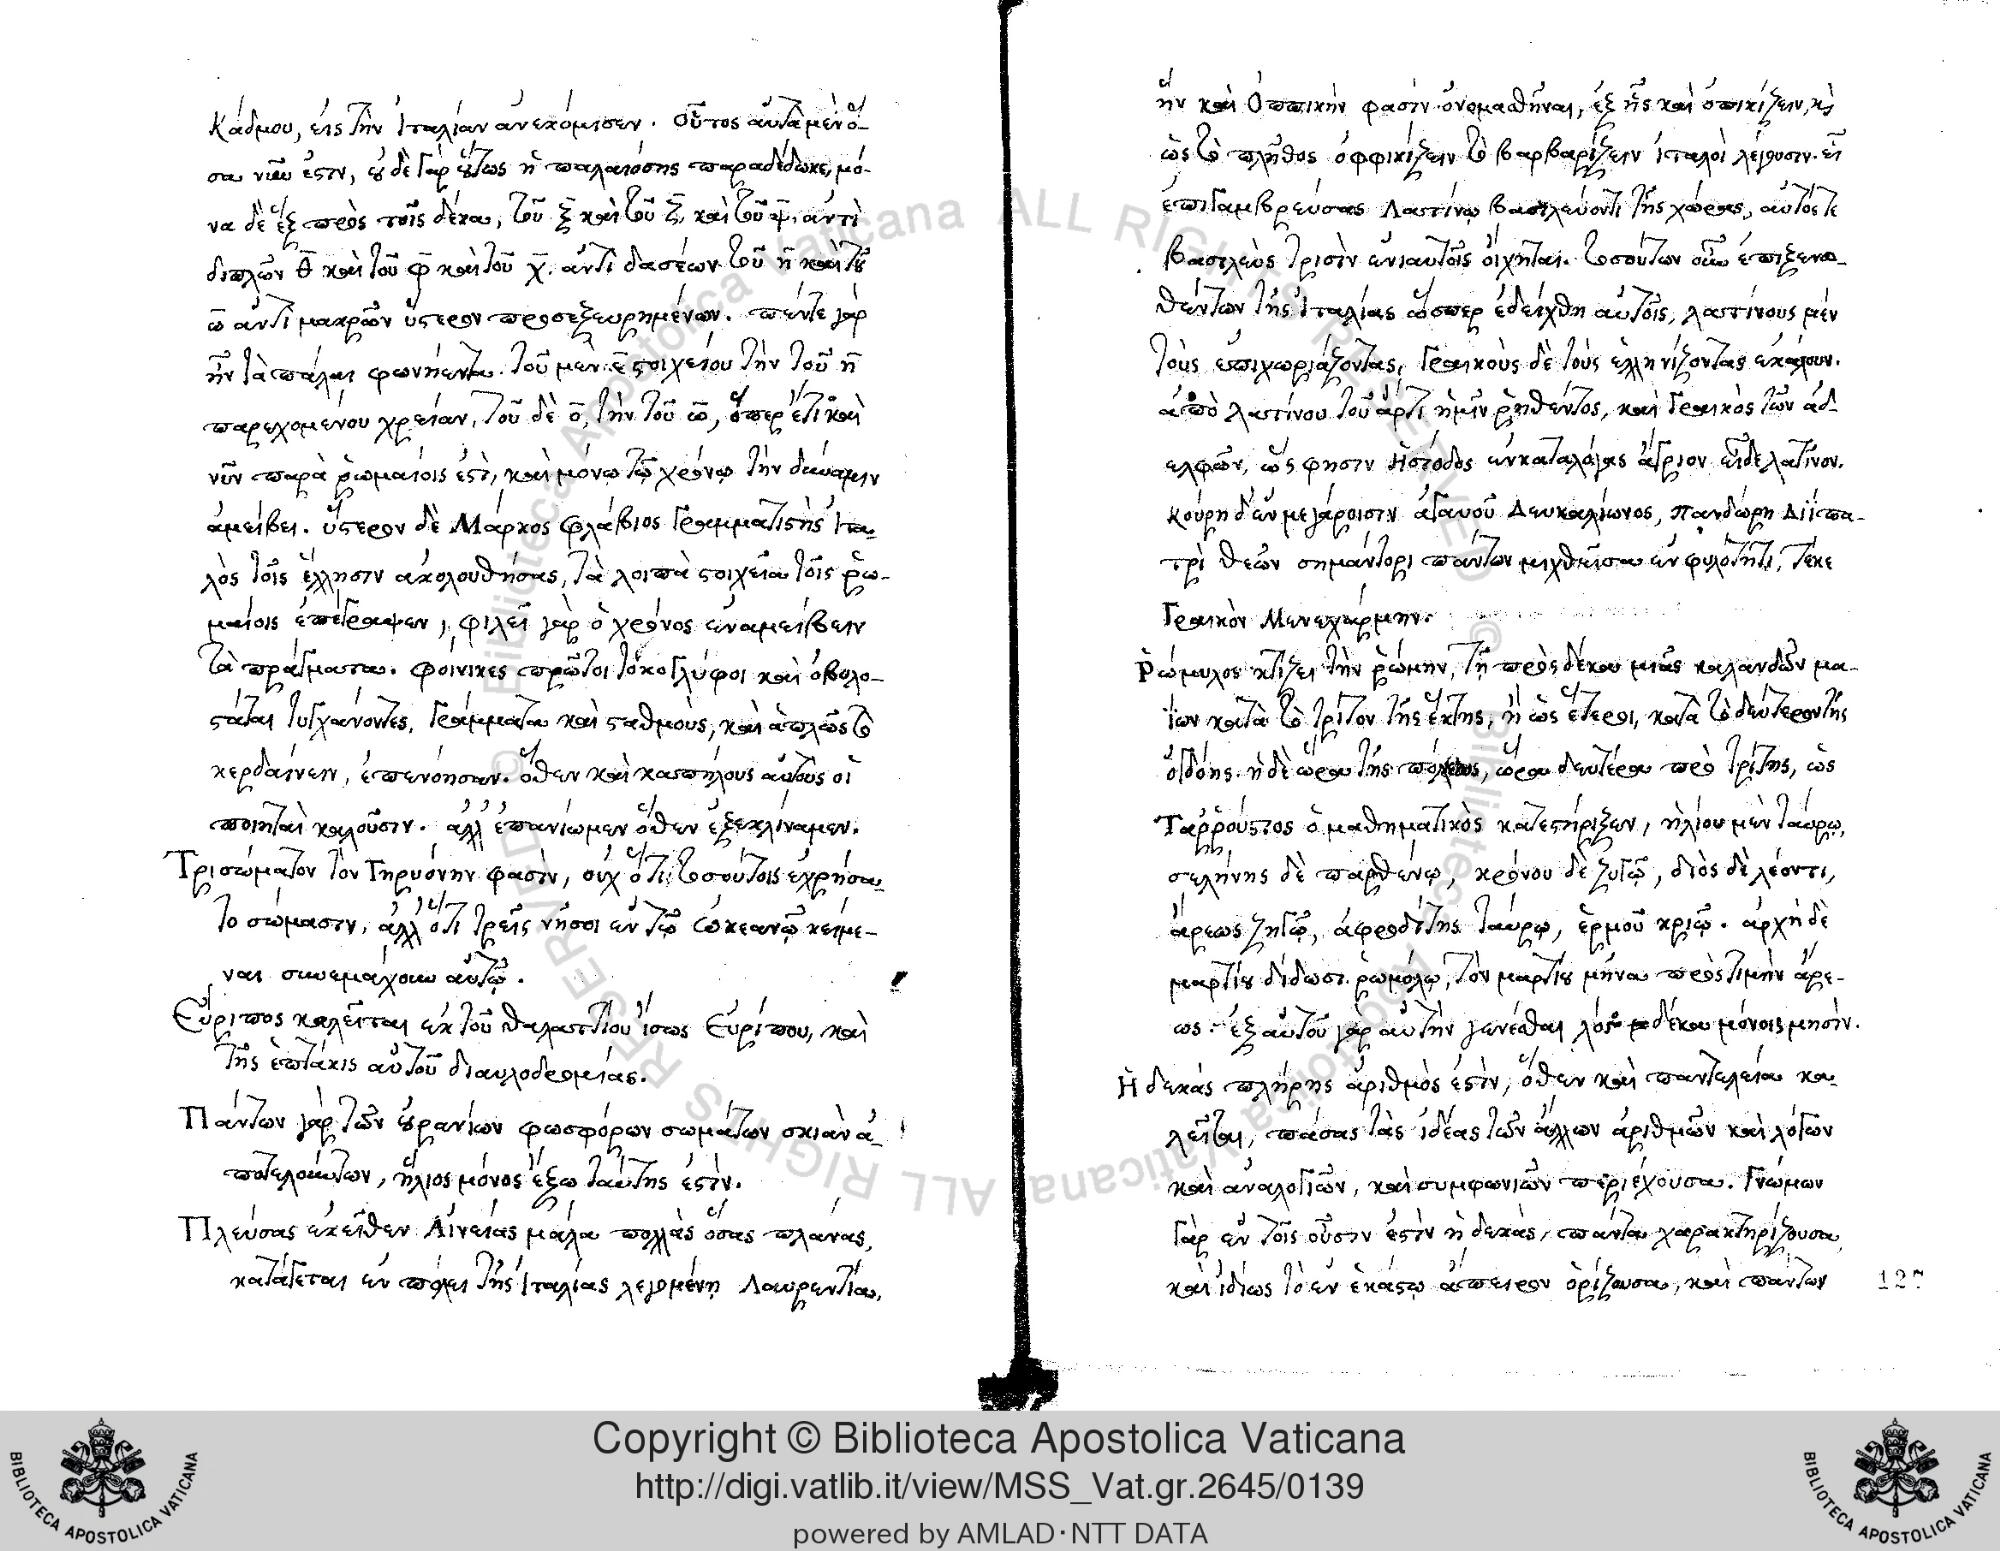 Κάδμου, εἰς τὴν Ἰταλίαν ἀνεκόμισεν. οὗτος αὐτὰ μὲν ὅ-
σα νῦν ἐστιν, οὐδὲ γὰρ οὕτως ἡ παλαιότης παραδέδωκε, μό-
να δὲ ἓξ πρὸς τοῖς δέκα, τοῦ ξ̄ καὶ τοῦ ζ̄, καὶ τοῦ ψ̄, ἀντὶ
διπλῶν θ̄ καὶ τοῦ φ̄ καὶ τοῦ χ̄. ἀντὶ δασέων τοῦ η̄ καὶ τοῦ
ω̄ ἀντὶ μακρῶν ὕστερον προσεξευρημένων. πέντε γὰρ
ἦν τὰ πάλαι φωνήεντα. τοῦ μὲν ε̄ στοιχείου τὴν τοῦ η̄
παρεχομένου χρείαν, τοῦ δὲ ο̄, τὴν τοῦ ω̄, ὅπερ ἔτι καὶ
νῦν παρὰ ῥωμαίοις ἐστὶ, καὶ μόνω τῷ χρόνῳ τὴν δύναμιν
ἀμείβει. ὕστερον δὲ Μάρκος φλάβιος Γραμματιστὴς Ἰτα-
λὸς τοῖς ἕλλησιν ἀκολουθήσας, τὰ λοιπὰ στοιχεῖα τοῖς ῥω-
μαίοις ἐπέγραψεν, φιλεῖ γὰρ ὁ χρόνος ἐναμείβειν
τὰ πράγματα. φοίνικες πρῶτοι τοκογλύφοι καὶ ὀβολο-
στάται τυγχάνοντες, Γράμματα καὶ σταθμοὺς, καὶ ἁπλῶς τὸ
κερδαίνειν, ἐπενόησαν. ὅθεν καὶ καπήλους αὐτοὺς οἱ
ποιηταὶ καλοῦσιν. ἀλλ' ἐπανίωμεν ὅθεν ἐξεκλίναμεν.
Τρισώματον τὸν Γηρυόνην φασὶν, οὐχ ὅτι τοσούτοις ἐχρήσα-
το σώμασιν, ἀλλ' ὅτι τρεῖς νῆσοι ἐν τῷ ὠκεανῷ κείμε-
ναι συνεμάχουν αὐτῷ.
Εὔριπος καλεῖται ἐκ τοῦ θαλαττίου ἴσως Εὐρίπου, καὶ
τῆς ἑπτάκις αὐτοῦ διαυλοδρομίας.
Πάντων γὰρ τῶν οὐρανίων φωσφόρων σωμάτων σκιὰν ἀ-
ποτελούντων, ἥλιος μόνος ἔξω ταύτης ἐστὶν.
Πλεύσας ἐκεῖθεν Αἰνείας μάλα πολλὰς ὅσας πλάνας,
κατάγεται ἐν πόλει τῆς Ἰταλίας λεγομένη Λαυρεντία,
ἣν καὶ Ὀππικὴν φασὶν ὀνομασθῆναι, ἐξ ἧς καὶ ὀπικίζειν, καὶ
ὡς τὸ πλῆθος ὀφφικίζειν τὸ βαρβαρίζειν ἰταλοὶ λέγουσιν. εἶ
ἐπιγαμβρεύσας Λατίνῳ βασιλεύοντι τῆς χώρας, αὐτός τε
βασιλεὺς τρισὶν ἐνιαυτοῖς οἴχηται. τοσούτων οὖν ἐπιξενω-
θέντων τῆς Ἰταλίας ὥσπερ ἐδείχθη αὐτοῖς, λατίνους μὲν
τοὺς ἐπιχωριάζοντας, Γραικοὺς δὲ τοὺς ἑλληνίζοντας ἐκάλουν.
ἀπὸ λατίνου τοῦ ἄρτι ἡμῖν ῥηθέντος, καὶ Γραικὸς τῶν ἀδ-
ελφῶν, ὥς φησιν Ἡσίοδος ἐν καταλόγοις ἄγριον εἶδε λατῖνον.
Κούρη δ' ἐν μεγάροισιν ἀγαυοῦ Δευκαλίωνος, Πανδώρη Διῒ πα-
τρὶ θεῶν σημάντορι πάντων μιχθεῖσα ἐν φιλότητι, τέκε
Γραικὸν Μενεχάρμην.
Ῥώμυλος κτίζει τὴν ῥώμην, τῇ πρὸς δέκα μιᾶς καλανδῶν μα-
ΐων κατὰ τὸ τρίτον τῆς ἕκτης, ἢ ὡς ἕτεροι, κατὰ τὸ δεύτερον τῆς
ὀγδόης. ἡ δὲ ὥρα τῆς πόλεως, ὥρα δευτέρα πρὸ τρίτης, ὡς
Ταρρούστος ὁ μαθηματικὸς κατεστήριξεν, ἡλίου μὲν ταύρῳ,
σελήνης δὲ παρθένῳ, κρόνου δὲ ζυγῷ, διὸς δὲ λέοντι,
ἄρεως ζυγῷ, ἀφροδίτης ταύρῳ, ἑρμοῦ κριῷ. ἀρχὴ δὲ
μαρτίου δίδωσι ῥωμύλῳ, τὸν μαρτίου μῆνα πρὸς τιμὴν ἄρε-
ως. ἐξ αὐτοῦ γὰρ αὐτὴν γενέσθαι δέκα μόνοις μησὶν.
Ἡ δεκὰς πλήρης ἀριθμὸς ἐστὶν, ὅθεν καὶ παντελεία κα-
λεῖται, πάσας τὰς ἰδέας τῶν ἄλλων ἀριθμῶν καὶ λόγων
καὶ ἀναλογιῶν, καὶ συμφωνιῶν περιέχουσα. Γνώμων
γὰρ ἐν τοῖς οὖσιν ἐστὶν ἡ δεκὰς, πάντα χαρακτηρίζουσα,
καὶ ἰδίως τὸ ἐν ἑκάστῳ ἄπειρον ὁρίζουσα, καὶ πάντων
127
© Biblioteca Apostolica Vaticana ALL RIGHTS RESERVED
© Biblioteca Apostolica Vaticana ALL RIGHTS RESERVED
Copyright © Biblioteca Apostolica Vaticana
http://digi.vatlib.it/view/MSS_Vat.gr.2645/0139
powered by AMLAD·NTT DATA
BIBLIOTECA APOSTOLICA VATICANA
BIBLIOTECA APOSTOLICA VATICANA